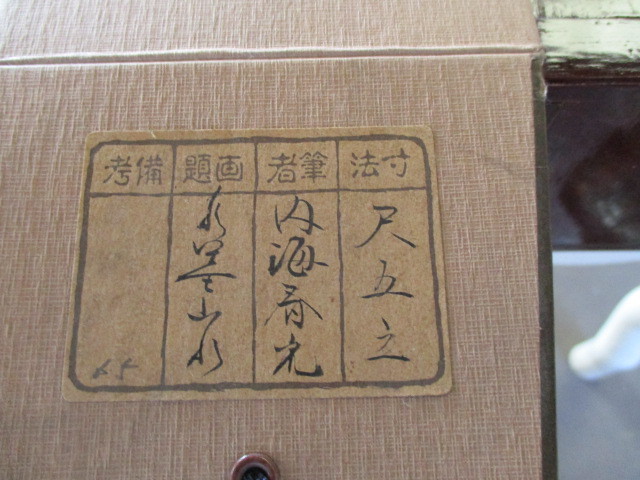 寸法
尺五立
筆者
内海春光
画題
水墨山水
備考